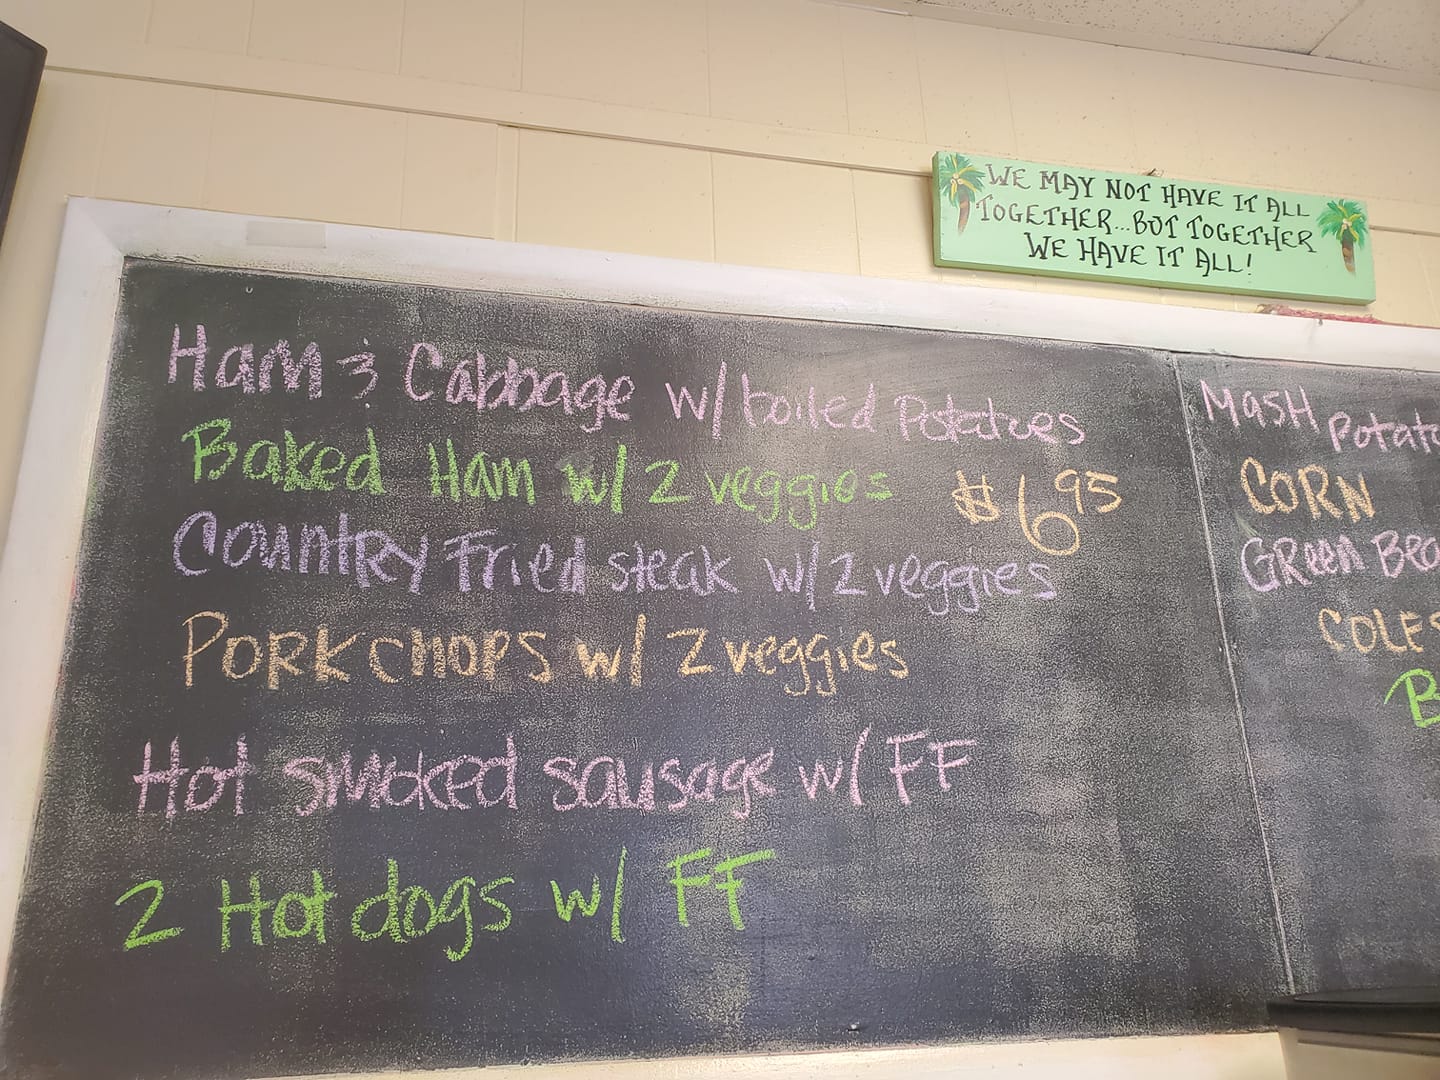 WE MAY NOT HAVE IT ALL
TOGETHER...BUT TOGETHER
WE HAVE IT ALL!
Ham & Cabbage w/ boiled Potatoes
Baked Ham w/ 2 veggies $6.95
Country Fried steak w/ 2 veggies
PORKCHOPS w/ 2 veggies
Hot smoked sausage w/ FF
2 Hot dogs w/ FF
MasH
CORN
GReen